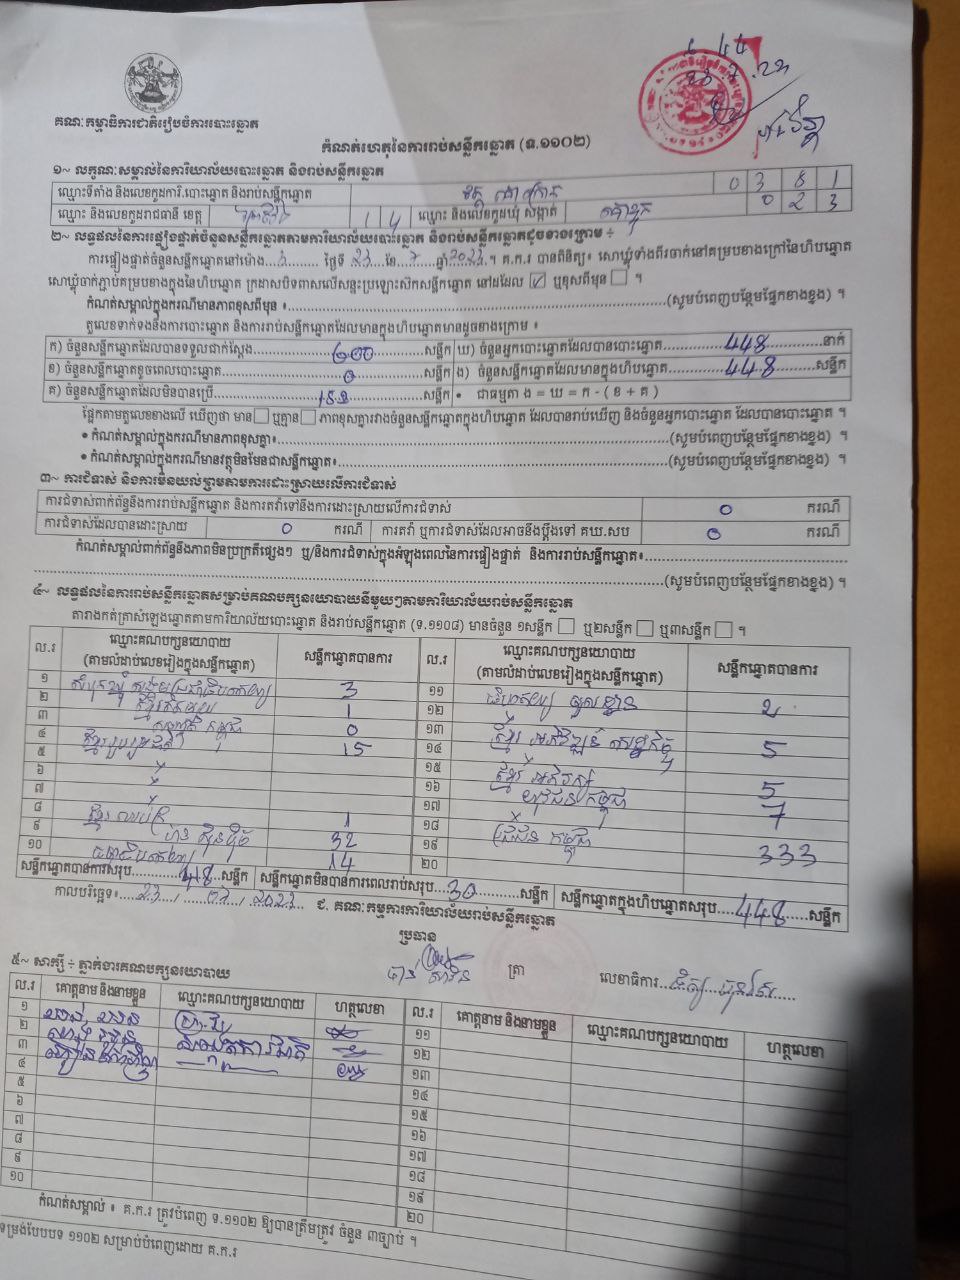 គណៈកម្មាធិការជាតិរៀបចំការបោះឆ្នោត
កំណត់ហេតុនៃការរាប់សន្លឹកឆ្នោត (ទ.១១០២)
១~ លក្ខណៈសម្គាល់នៃការិយាល័យបោះឆ្នោត និងរាប់សន្លឹកឆ្នោត
ឈ្មោះទីតាំង និងលេខកូដការិ.បោះឆ្នោត និងរាប់សន្លឹកឆ្នោត 0 3 8 1
ឈ្មោះ និងលេខកូដរាជធានី ខេត្ត 1 4 ឈ្មោះ និងលេខកូដឃុំ សង្កាត់ 0 2 3
២~ លទ្ធផលនៃការផ្ទៀងផ្ទាត់ចំនួនសន្លឹកឆ្នោតតាមការិយាល័យបោះឆ្នោត និងរាប់សន្លឹកឆ្នោតដូចខាងក្រោម ÷
ការផ្ទៀងផ្ទាត់ចំនួនសន្លឹកឆ្នោតនៅម៉ោង ថ្ងៃទី 23 ខែ 7 ឆ្នាំ 2023 ។ គ.ក.រ បានពិនិត្យ៖ សោឃ្លុំទាំងពីរចាក់នៅគម្របខាងក្រៅនៃហិបឆ្នោត
សោឃ្លុំចាក់ភ្ជាប់គម្របខាងក្នុងនៃហិបឆ្នោត ក្រដាសបិទពាសលើសន្ទះប្រឡោះស៊កសន្លឹកឆ្នោត នៅដដែល ☑ ឬខុសពីមុន ☐ ។
កំណត់សម្គាល់ក្នុងករណីមានភាពខុសពីមុន ៖ (សូមបំពេញបន្ថែមផ្នែកខាងខ្នង) ។
តួលេខទាក់ទងនឹងការបោះឆ្នោត និងការរាប់សន្លឹកឆ្នោតដែលមានក្នុងហិបឆ្នោតមានដូចខាងក្រោម ៖
ក) ចំនួនសន្លឹកឆ្នោតដែលបានទទួលជាក់ស្តែង 600 សន្លឹក ឃ) ចំនួនអ្នកបោះឆ្នោតដែលបានបោះឆ្នោត 448 នាក់
ខ) ចំនួនសន្លឹកឆ្នោតខូចពេលបោះឆ្នោត 0 សន្លឹក ង) ចំនួនសន្លឹកឆ្នោតដែលមានក្នុងហិបឆ្នោត 448 សន្លឹក
គ) ចំនួនសន្លឹកឆ្នោតដែលមិនបានប្រើ 152 សន្លឹក • ជាធម្មតា ង = ឃ = ក - ( ខ + គ )
ផ្អែកតាមតួលេខខាងលើ ឃើញថា មាន ☐ ឬគ្មាន ☐ ភាពខុសគ្នារវាងចំនួនសន្លឹកឆ្នោតក្នុងហិបឆ្នោត ដែលបានរាប់ឃើញ និងចំនួនអ្នកបោះឆ្នោត ដែលបានបោះឆ្នោត ។
• កំណត់សម្គាល់ក្នុងករណីមានភាពខុសគ្នា៖ (សូមបំពេញបន្ថែមផ្នែកខាងខ្នង) ។
• កំណត់សម្គាល់ក្នុងករណីមានវត្ថុមិនមែនជាសន្លឹកឆ្នោត៖ (សូមបំពេញបន្ថែមផ្នែកខាងខ្នង) ។
៣~ ការជំទាស់ និងការមិនយល់ព្រមតាមការដោះស្រាយលើការជំទាស់
ការជំទាស់ពាក់ព័ន្ធនឹងការរាប់សន្លឹកឆ្នោត និងការតវ៉ាទៅនឹងការដោះស្រាយលើការជំទាស់ 0 ករណី
ការជំទាស់ដែលបានដោះស្រាយ 0 ករណី ការតវ៉ា ឬការជំទាស់ដែលអាចនឹងប្តឹងទៅ គឃ.សប 0 ករណី
កំណត់សម្គាល់ពាក់ព័ន្ធនឹងភាពមិនប្រក្រតីផ្សេងៗ ឬ/និងការជំទាស់ក្នុងអំឡុងពេលនៃការផ្ទៀងផ្ទាត់ និងការរាប់សន្លឹកឆ្នោត៖
(សូមបំពេញបន្ថែមផ្នែកខាងខ្នង) ។
៤~ លទ្ធផលនៃការរាប់សន្លឹកឆ្នោតសម្រាប់គណបក្សនយោបាយនីមួយៗតាមការិយាល័យរាប់សន្លឹកឆ្នោត
តារាងកត់ត្រាសំឡេងឆ្នោតតាមការិយាល័យបោះឆ្នោត និងរាប់សន្លឹកឆ្នោត (ទ.១១០៨) មានចំនួន ១សន្លឹក ☐ ឬ២សន្លឹក ☐ ឬ៣សន្លឹក ☐ ។
ល.រ ឈ្មោះគណបក្សនយោបាយ (តាមលំដាប់លេខរៀងក្នុងសន្លឹកឆ្នោត) សន្លឹកឆ្នោតបានការ ល.រ ឈ្មោះគណបក្សនយោបាយ (តាមលំដាប់លេខរៀងក្នុងសន្លឹកឆ្នោត) សន្លឹកឆ្នោតបានការ
១ 3 ១១ 2
២ 1 ១២
៣ 0 ១៣ 5
៤ 15 ១៤
៥ ១៥ 5
៦ ១៦ 7
៧ ១៧
៨ 1 ១៨ 333
៩ 32 ១៩
១០ 14 ២០
សន្លឹកឆ្នោតបានការសរុប 418 សន្លឹក សន្លឹកឆ្នោតមិនបានការពេលរាប់សរុប 30 សន្លឹក សន្លឹកឆ្នោតក្នុងហិបឆ្នោតសរុប 448 សន្លឹក
កាលបរិច្ឆេទ៖ 23 / 07 / 2023 ជ. គណៈកម្មការការិយាល័យរាប់សន្លឹកឆ្នោត
ប្រធាន
ត្រា លេខាធិការ
៥~ សាក្សី ÷ ភ្នាក់ងារគណបក្សនយោបាយ
ល.រ គោត្តនាម និងនាមខ្លួន ឈ្មោះគណបក្សនយោបាយ ហត្ថលេខា ល.រ គោត្តនាម និងនាមខ្លួន ឈ្មោះគណបក្សនយោបាយ ហត្ថលេខា
១ ១១
២ ១២
៣ ១៣
៤ ១៤
៥ ១៥
៦ ១៦
៧ ១៧
៨ ១៨
៩ ១៩
១០ ២០
កំណត់សម្គាល់ ៖ គ.ក.រ ត្រូវបំពេញ ទ.១១០២ ឱ្យបានត្រឹមត្រូវ ចំនួន ៣ច្បាប់ ។
ទម្រង់បែបបទ ១១០២ សម្រាប់បំពេញដោយ គ.ក.រ